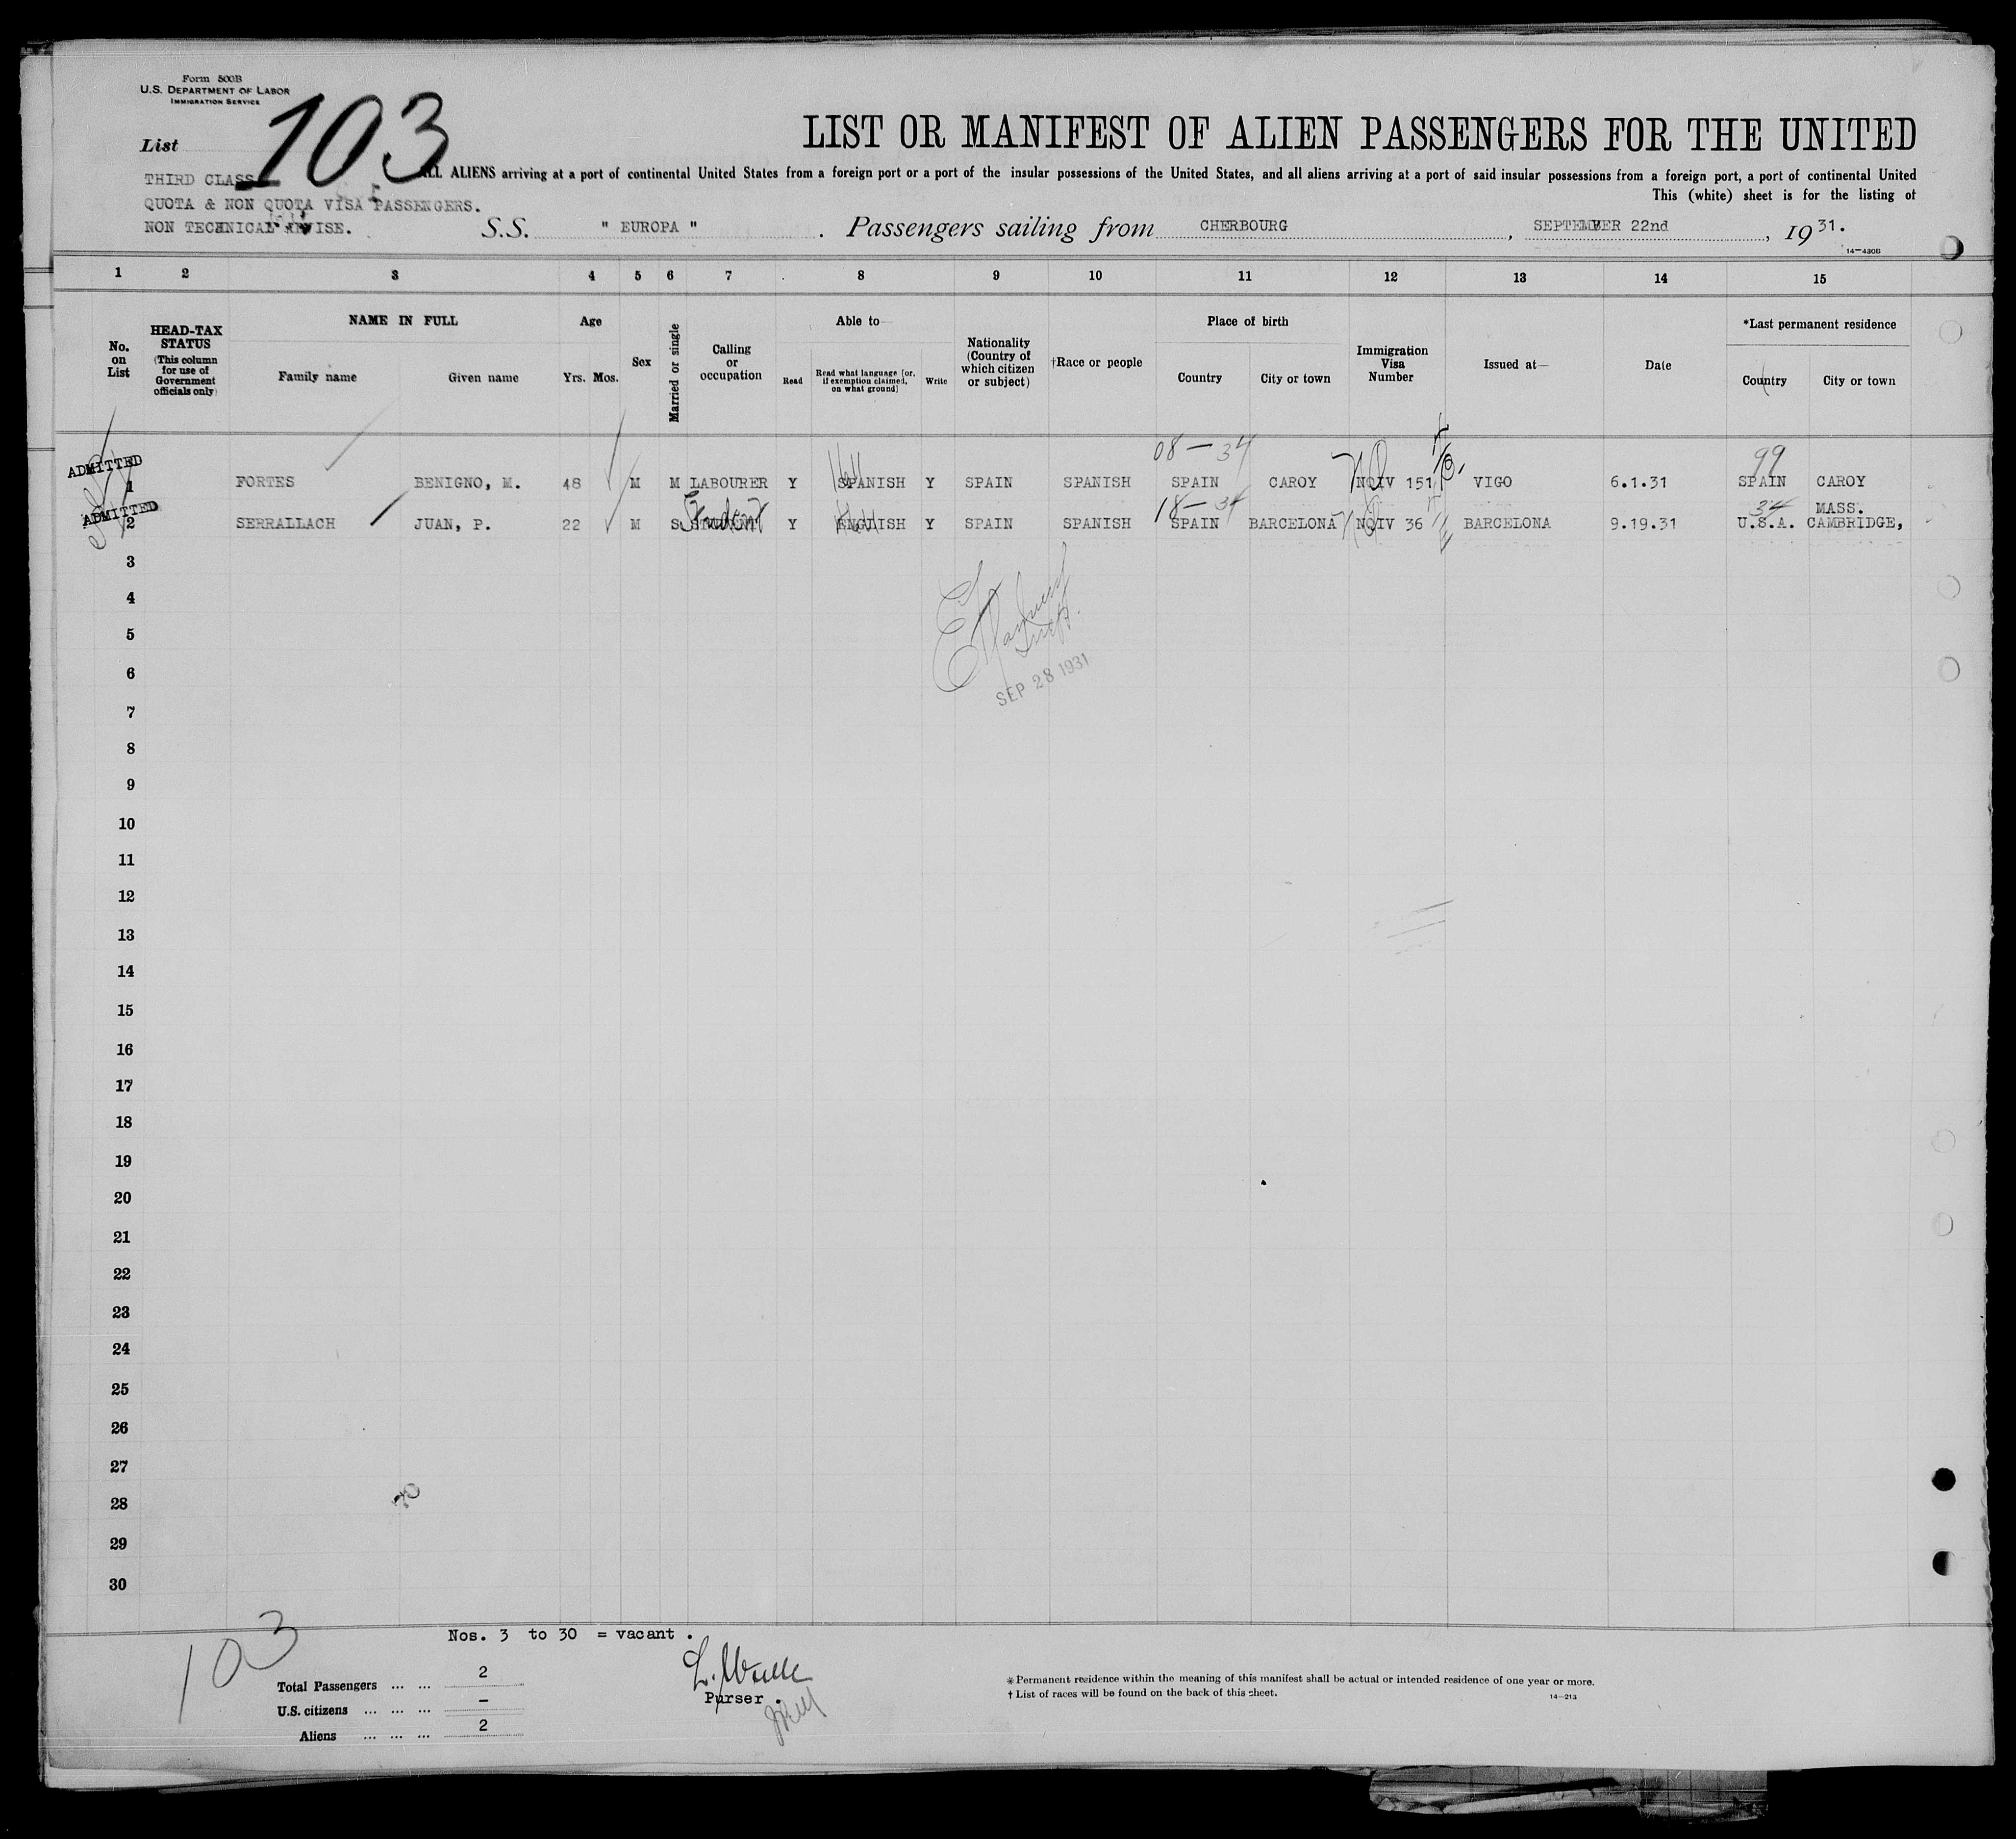 Form 500B
U.S. DEPARTMENT OF LABOR
IMMIGRATION SERVICE
List 103
LIST OR MANIFEST OF ALIEN PASSENGERS FOR THE UNITED
ALL ALIENS arriving at a port of continental United States from a foreign port or a port of the insular possessions of the United States, and all aliens arriving at a port of said insular possessions from a foreign port, a port of continental United
THIRD CLASS
This (white) sheet is for the listing of
QUOTA & NON QUOTA VISA PASSENGERS.
NON TECHNICAL
S.S. " EUROPA " . Passengers sailing from CHERBOURG , SEPTEMBER 22nd , 19 31.
14-430B
1 2 3 4 5 6 7 8 9 10 11 12 13 14 15
No. on List
HEAD-TAX STATUS (This column for use of Government officials only)
NAME IN FULL
Family name Given name
Age
Yrs. Mos.
Sex
Married or single
Calling or occupation
Able to—
Read Read what language [or, if exemption claimed, on what ground] Write
Nationality (Country of which citizen or subject)
†Race or people
Place of birth
Country City or town
Immigration Visa Number
Issued at—
Date
*Last permanent residence
Country City or town
08 — 34 99
ADMITTED
1 FORTES BENIGNO, M. 48 M M LABOURER Y SPANISH Y SPAIN SPANISH SPAIN CAROY NQIV 151 VIGO 6.1.31 SPAIN CAROY
18 — 34 34 MASS.
ADMITTED
2 SERRALLACH JUAN, P. 22 M S Student Y ENGLISH Y SPAIN SPANISH SPAIN BARCELONA NQIV 36 BARCELONA 9.19.31 U.S.A. CAMBRIDGE,
3
4
5
6
SEP 28 1931
7
8
9
10
11
12
13
14
15
16
17
18
19
20
21
22
23
24
25
26
27
28
29
30
103
Nos. 3 to 30 = vacant .
Total Passengers ... ... 2
U.S. citizens ... ... ... –
Aliens ... ... ... 2
Purser .
* Permanent residence within the meaning of this manifest shall be actual or intended residence of one year or more.
† List of races will be found on the back of this sheet.
14-213